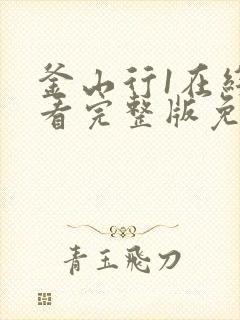 釜山行1在线
看完整版免
青玉飛刀